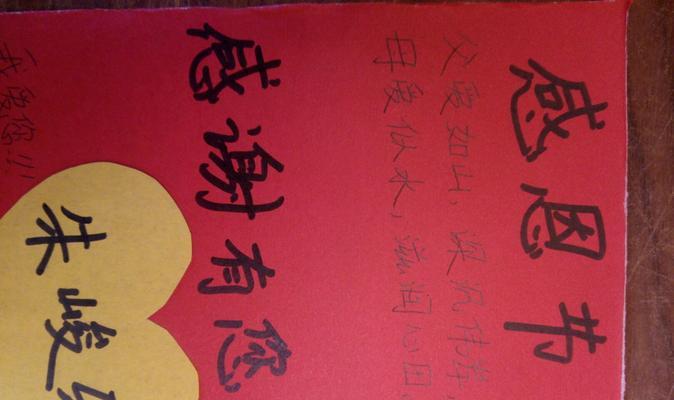 感恩书
父爱如山，深沉伟岸，
母爱似水，滋润心田。
感谢有您
我爱您!!!
朱峻